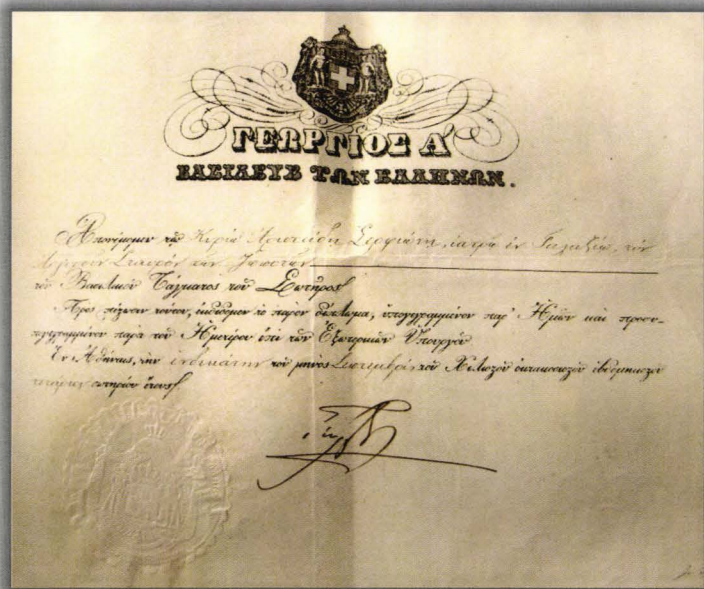 ΓΕΩΡΓΙΟΣ Α΄
ΒΑΣΙΛΕΥΣ ΤΩΝ ΕΛΛΗΝΩΝ.
Ἀπονέμομεν τῷ Κυρίῳ Ἀριστείδῃ, ἰατρῷ ἐν Γαλαξείῳ, τὸν
Σταυρὸν τῶν Ἱπποτῶν
τοῦ Βασιλικοῦ Τάγματος τοῦ Σωτῆρος
Πρὸς πίστωσιν τούτου, ἐκδίδομεν τὸ παρὸν δίπλωμα, ὑπογεγραμμένον παρ' Ἡμῶν καὶ προσυ-
πογεγραμμένον παρὰ τοῦ Ἡμετέρου ἐπὶ τῶν Ἐξωτερικῶν Ὑπουργοῦ
Ἐν Ἀθήναις, τὴν ἑνδεκάτην τοῦ μηνὸς Σεπτεμβρίου τοῦ Χιλιοστοῦ ὀκτακοσιοστοῦ ἑβδομηκοστοῦ
τετάρτου σωτηρίου ἔτους